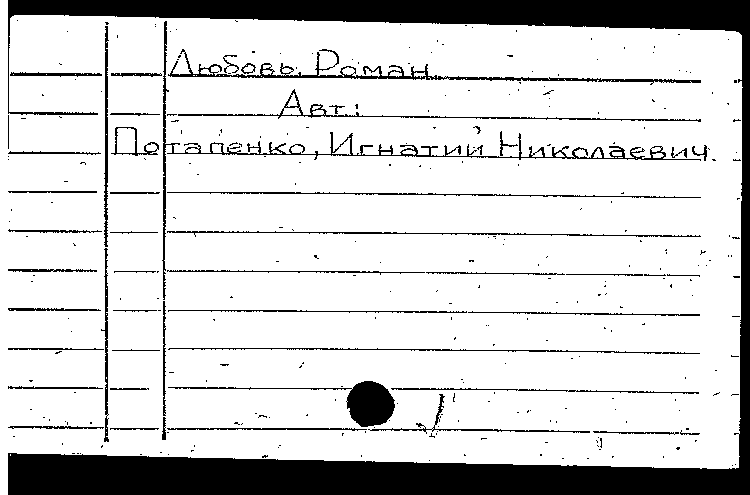 Любовь. Роман.
Авт.:
Потапенко, Игнатий Николаевич.